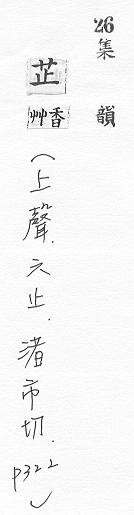 26集韻
芷 香艸(上聲.六止.渚市切.p322)